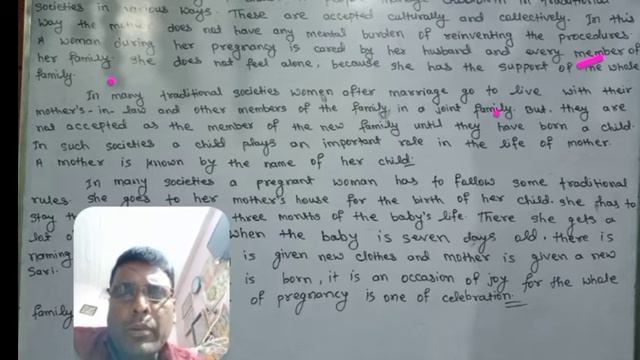 societies in various ways. These are accepted culturally and collectively. In this
way the mother does not have any mental burden of reinventing the procedures.
A woman during her pregnancy is cared by her husband and every member of
her family. She does not feel alone, because she has the support of the whole
family.
In many traditional societies women after marriage go to live with their
mother's-in-law and other members of the family, in a joint family. But they are
not accepted as the member of the new family until they have born a child.
In such societies a child plays an important role in the life of mother.
A mother is known by the name of her child.
In many societies a pregnant woman has to follow some traditional
rules. she goes to her mother's house for the birth of her child. she has to
stay three months of the baby's life. There she gets a
when the baby is seven days old. there is
naming is given new clothes and mother is given a new
Sari. is born, it is an occasion of joy for the whole
family of pregnancy is one of celebration.